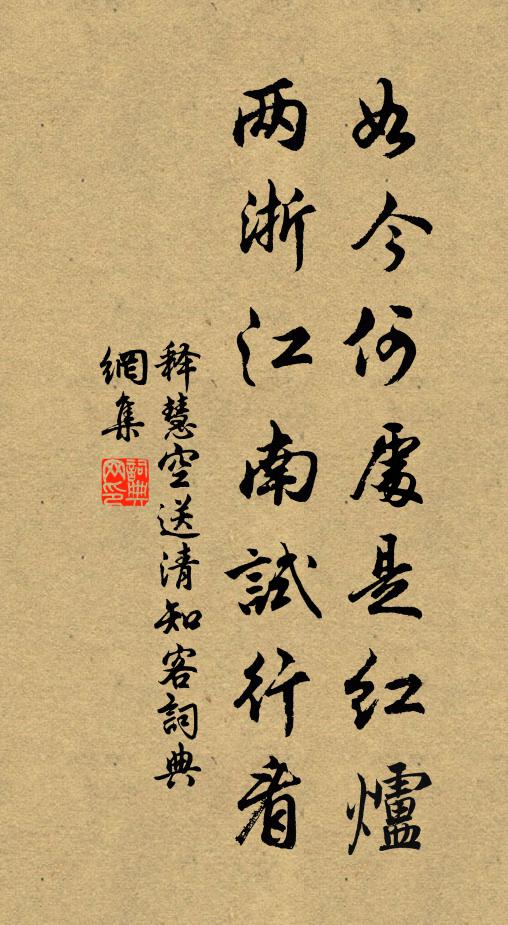 如今何處是红爐
两浙江南試行看
释慧空送清知客詞典
網集
詞典
网印